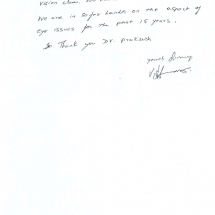 vision clear.
We are in safer hands on the aspect of
eye issues for the past 15 years.
Thank you Dr. Prakash
yours